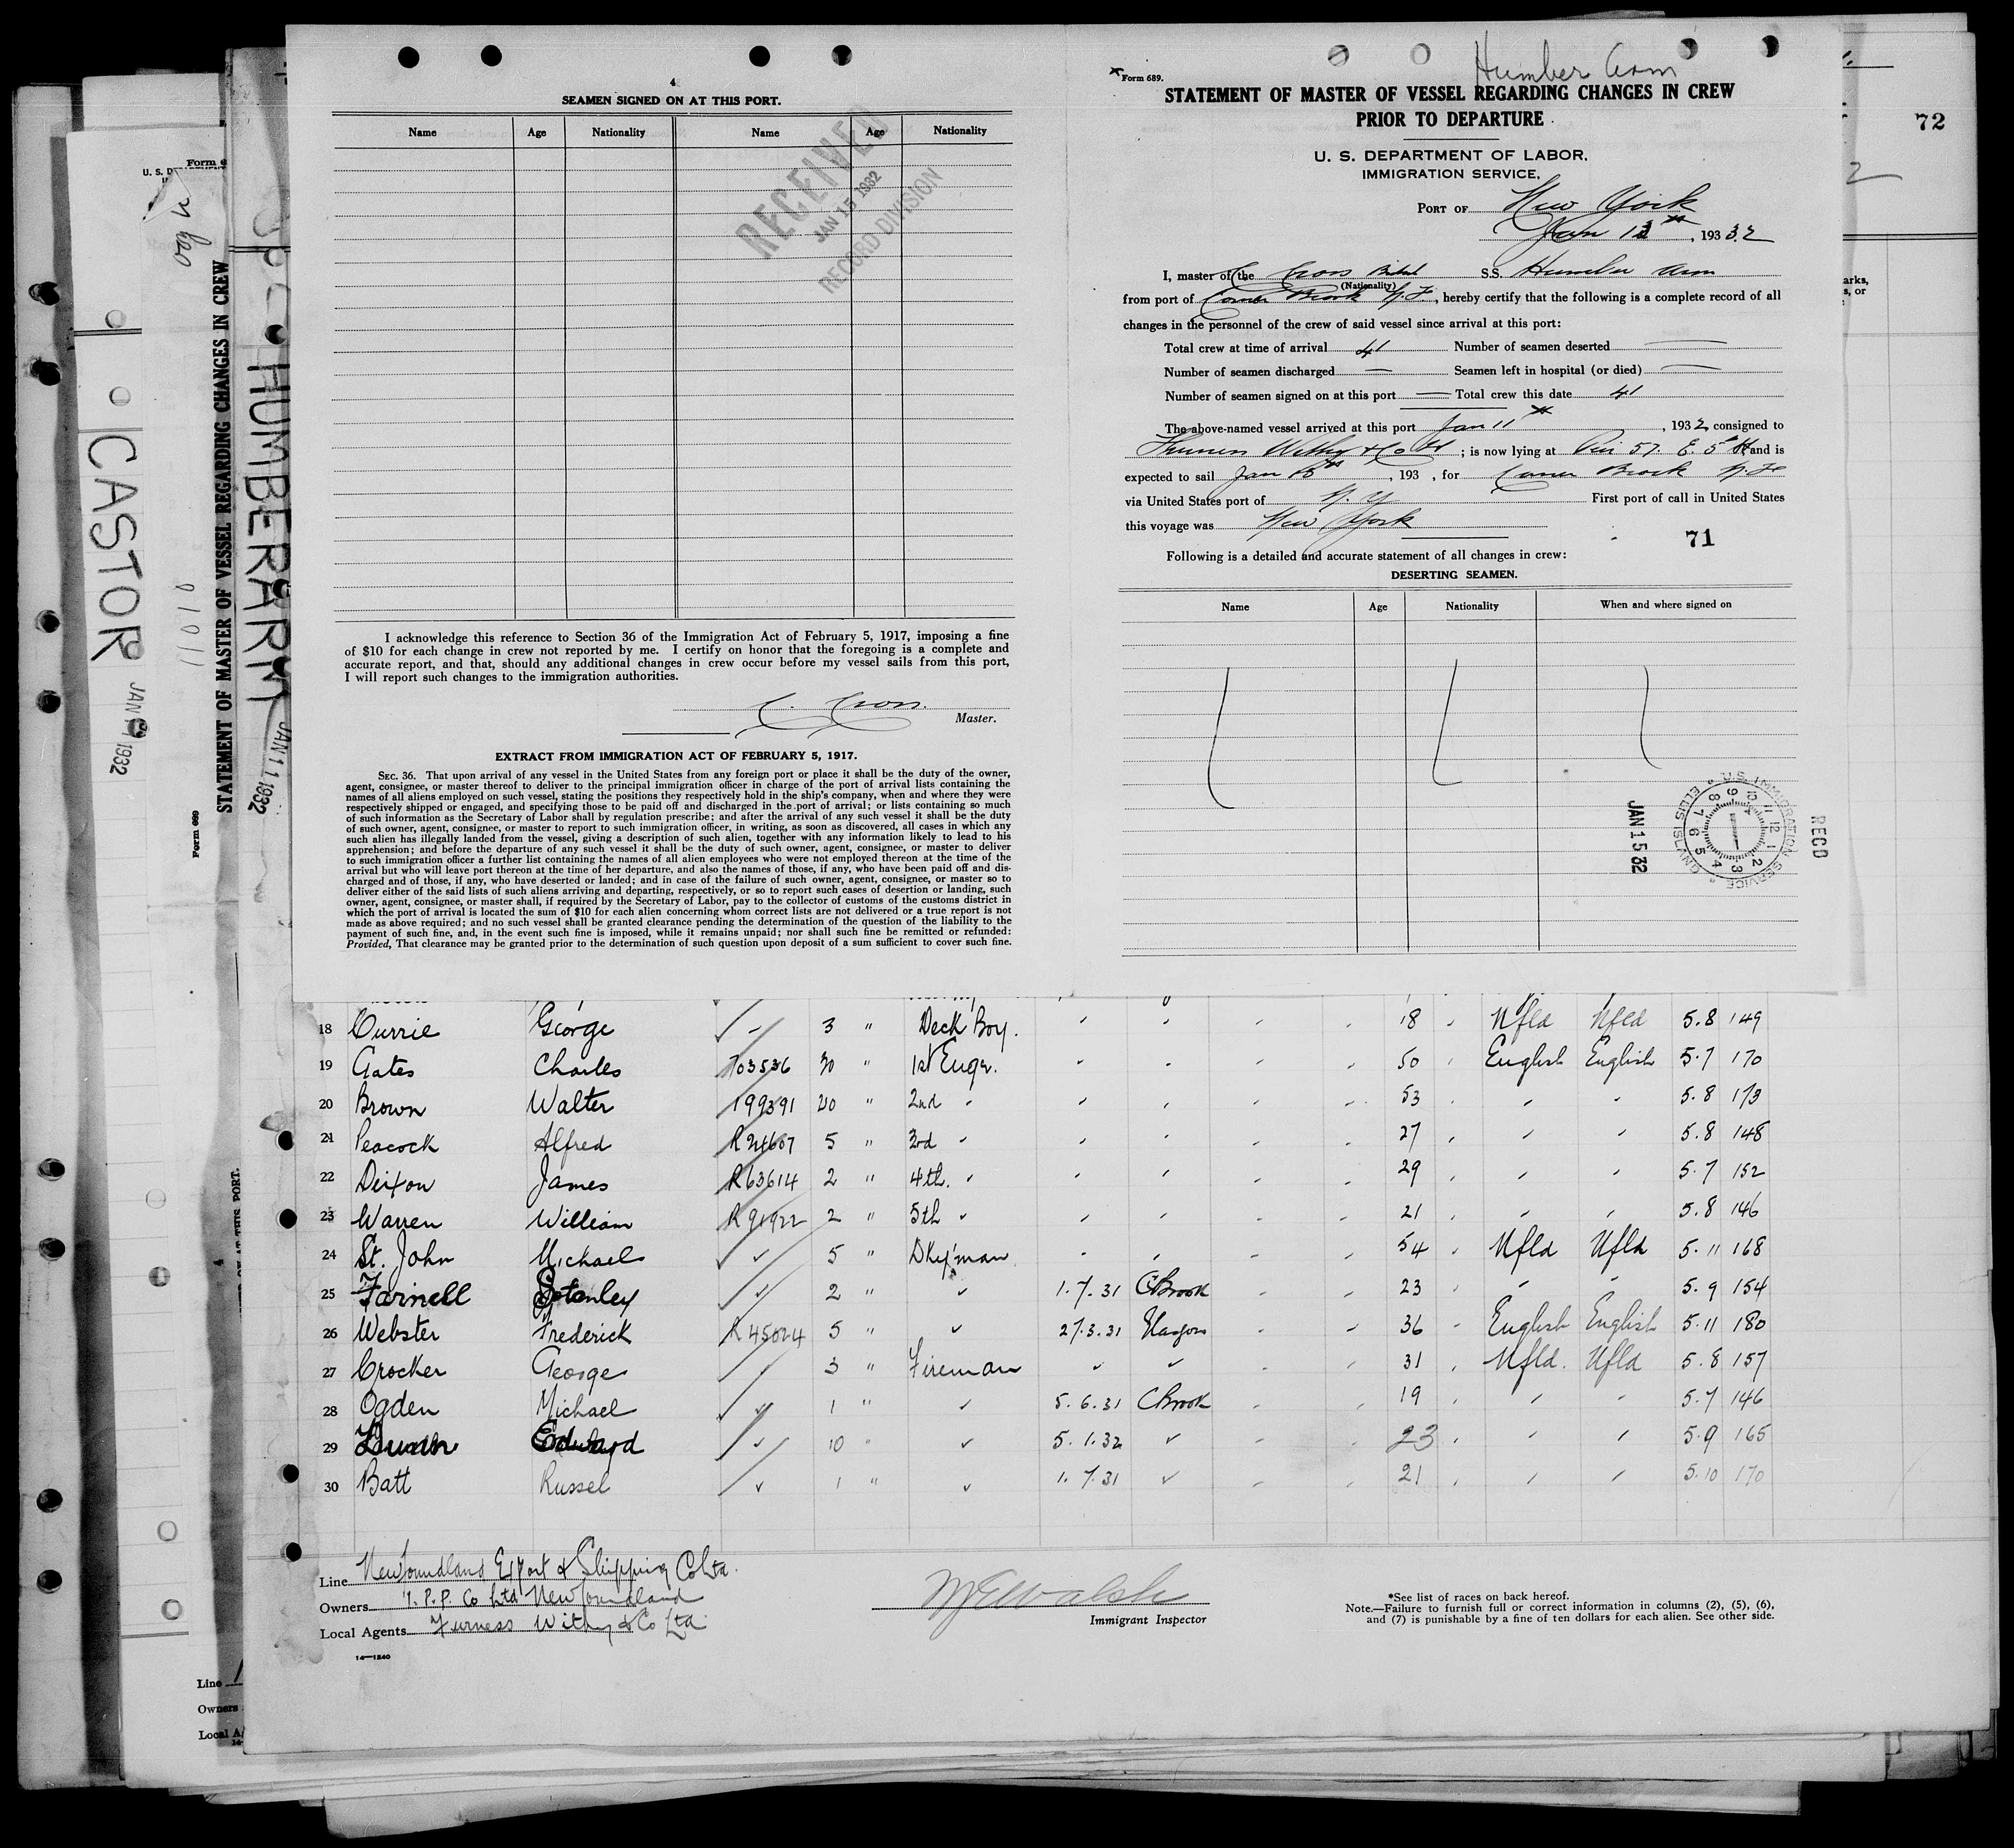 4
SEAMEN SIGNED ON AT THIS PORT.
Name Age Nationality Name Age Nationality
RECEIVED
JAN 15 1932
RECORD DIVISION
I acknowledge this reference to Section 36 of the Immigration Act of February 5, 1917, imposing a fine
of $10 for each change in crew not reported by me. I certify on honor that the foregoing is a complete and
accurate report, and that, should any additional changes in crew occur before my vessel sails from this port,
I will report such changes to the immigration authorities.
C. Cross.
Master.
EXTRACT FROM IMMIGRATION ACT OF FEBRUARY 5, 1917.
SEC. 36. That upon arrival of any vessel in the United States from any foreign port or place it shall be the duty of the owner,
agent, consignee, or master thereof to deliver to the principal immigration officer in charge of the port of arrival lists containing the
names of all aliens employed on such vessel, stating the positions they respectively hold in the ship's company, when and where they were
respectively shipped or engaged, and specifying those to be paid off and discharged in the port of arrival; or lists containing so much
of such information as the Secretary of Labor shall by regulation prescribe; and after the arrival of any such vessel it shall be the duty
of such owner, agent, consignee, or master to report to such immigration officer, in writing, as soon as discovered, all cases in which any
such alien has illegally landed from the vessel, giving a description of such alien, together with any information likely to lead to his
apprehension; and before the departure of any such vessel it shall be the duty of such owner, agent, consignee, or master to deliver
to such immigration officer a further list containing the names of all alien employees who were not employed thereon at the time of the
arrival but who will leave port thereon at the time of her departure, and also the names of those, if any, who have been paid off and dis-
charged and of those, if any, who have deserted or landed; and in case of the failure of such owner, agent, consignee, or master so to
deliver either of the said lists of such aliens arriving and departing, respectively, or so to report such cases of desertion or landing, such
owner, agent, consignee, or master shall, if required by the Secretary of Labor, pay to the collector of customs of the customs district in
which the port of arrival is located the sum of $10 for each alien concerning whom correct lists are not delivered or a true report is not
made as above required; and no such vessel shall be granted clearance pending the determination of the question of the liability to the
payment of such fine, and, in the event such fine is imposed, while it remains unpaid; nor shall such fine be remitted or refunded:
Provided, That clearance may be granted prior to the determination of such question upon deposit of a sum sufficient to cover such fine.
Humber Arm
Form 689.
STATEMENT OF MASTER OF VESSEL REGARDING CHANGES IN CREW
PRIOR TO DEPARTURE
U. S. DEPARTMENT OF LABOR,
IMMIGRATION SERVICE,
PORT OF New York
Jan 13th, 1932
I, master of the C Cross British S.S. Humber Arm
(Nationality)
from port of Corner Brook N.F., hereby certify that the following is a complete record of all
changes in the personnel of the crew of said vessel since arrival at this port:
Total crew at time of arrival 41 Number of seamen deserted —
Number of seamen discharged — Seamen left in hospital (or died) —
Number of seamen signed on at this port — Total crew this date 41
The above-named vessel arrived at this port Jan 11th, 1932 consigned to
Furness Withy & Co Ltd; is now lying at Pier 57. E. 5 St and is
expected to sail Jan, 193 , for Corner Brook N.F
via United States port of N.Y First port of call in United States
this voyage was New York
71
Following is a detailed and accurate statement of all changes in crew:
DESERTING SEAMEN.
Name Age Nationality When and where signed on
U.S. IMMIGRATION SERVICE ELLIS ISLAND
RECD
JAN 15 32
72
18 Currie George - 3 " Deck Boy. 18 Nfld Nfld 5.8 149
19 Gates Charles 703536 30 " 1st Engr. 50 English English 5.7 170
20 Brown Walter 199391 20 " 2nd " 53 " " 5.8 173
21 Peacock Alfred R 24607 5 " 3rd " 27 " " 5.8 148
22 Dixon James R 63614 2 " 4th. " 29 " " 5.7 152
23 Warren William R 91922 2 " 5th " 21 " " 5.8 146
24 St. John Michael ✓ 5 " Dkyman 54 Nfld Nfld 5.11 168
25 Farnell Stanley ✓ 2 " ✓ 1.7.31 C Brook 23 " " 5.9 154
26 Webster Frederick R 45024 5 " ✓ 27.3.31 Glasgow 36 English English 5.11 180
27 Crocker George 3 " Fireman ✓ ✓ 31 Nfld. Nfld 5.8 157
28 Ogden Michael ✓ 1 " ✓ 5.6.31 C Brook 19 " " 5.7 146
29 Edward ✓ 10 " ✓ 5.1.32 ✓ 23 " " 5.9 165
30 Batt Russel ✓ 1 " ✓ 1.7.31 ✓ 21 " " 5.10 170
Line Newfoundland Export & Shipping Co Ltd.
Owners I.P.P. Co Ltd Newfoundland
Local Agents Furness Withy & Co Ltd.
14—1240
M E Walsh
Immigrant Inspector
*See list of races on back hereof.
Note.—Failure to furnish full or correct information in columns (2), (5), (6),
and (7) is punishable by a fine of ten dollars for each alien. See other side.
HUMBER ARM
JAN 11 1932
STATEMENT OF MASTER OF VESSEL REGARDING CHANGES IN CREW
Form 689
CASTOR
JAN 9 1932
Line
Owners